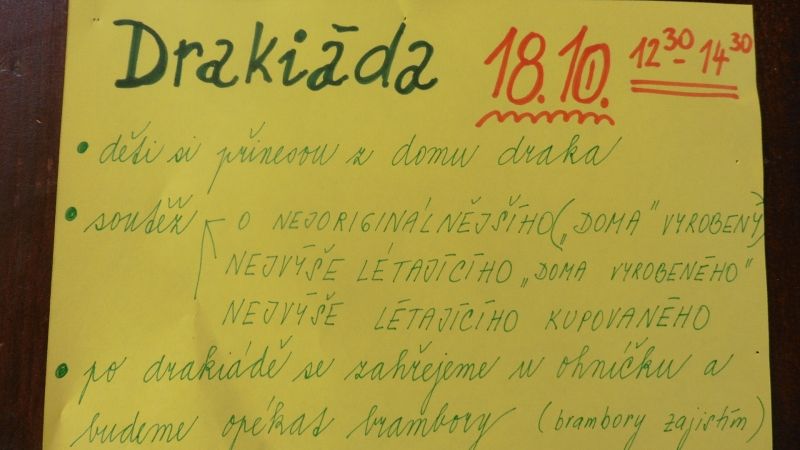 Drakiáda 18.10. 12³⁰ - 14³⁰
• děti si přinesou z domu draka
• soutěž O NEJORIGINÁLNĚJŠÍHO („DOMA" VYROBENÝ)
NEJVÝŠE LÉTAJÍCÍHO „DOMA VYROBENÉHO"
NEJVÝŠE LÉTAJÍCÍHO KUPOVANÉHO
• po drakiádě se zahřejeme u ohníčku a
budeme opékat brambory (brambory zajistím)